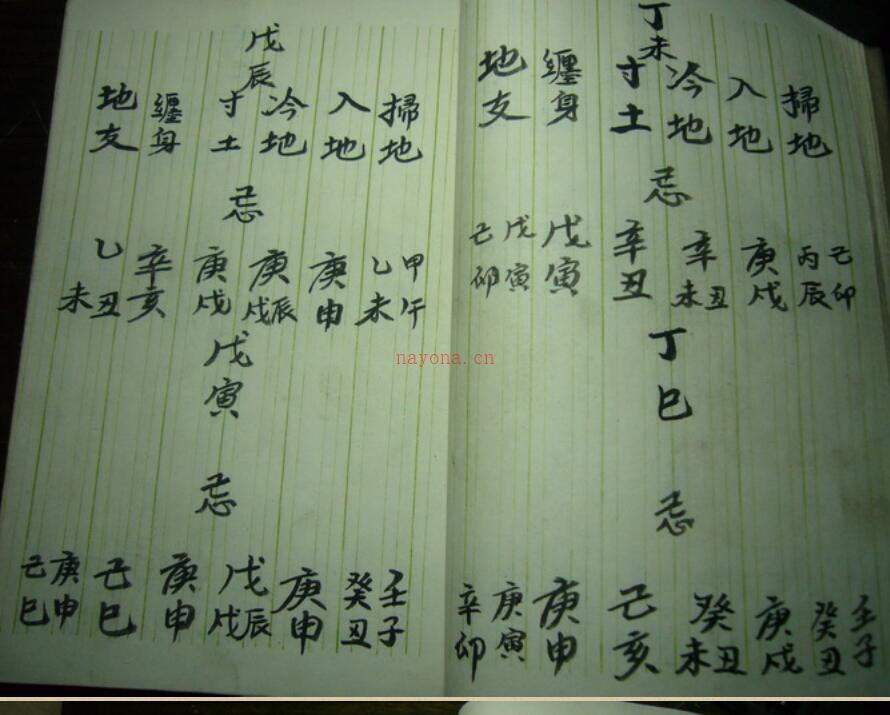 丁未
掃地
入地
冷地
寸土
纏身
地支
忌
己卯
丙辰
庚戌
辛丑未
辛丑
戊寅
戊寅
己卯
丁巳
忌
壬子
癸丑
庚戌
癸丑未
己亥
庚申
庚寅
辛卯
戊辰
掃地
入地
冷地
寸土
纏身
地支
忌
甲午
乙未
庚申
庚辰戌
庚戌
辛亥
乙丑未
戊寅
忌
壬子
癸丑
庚申
戊辰戌
庚申
己巳
庚申
己巳
nayona.cn